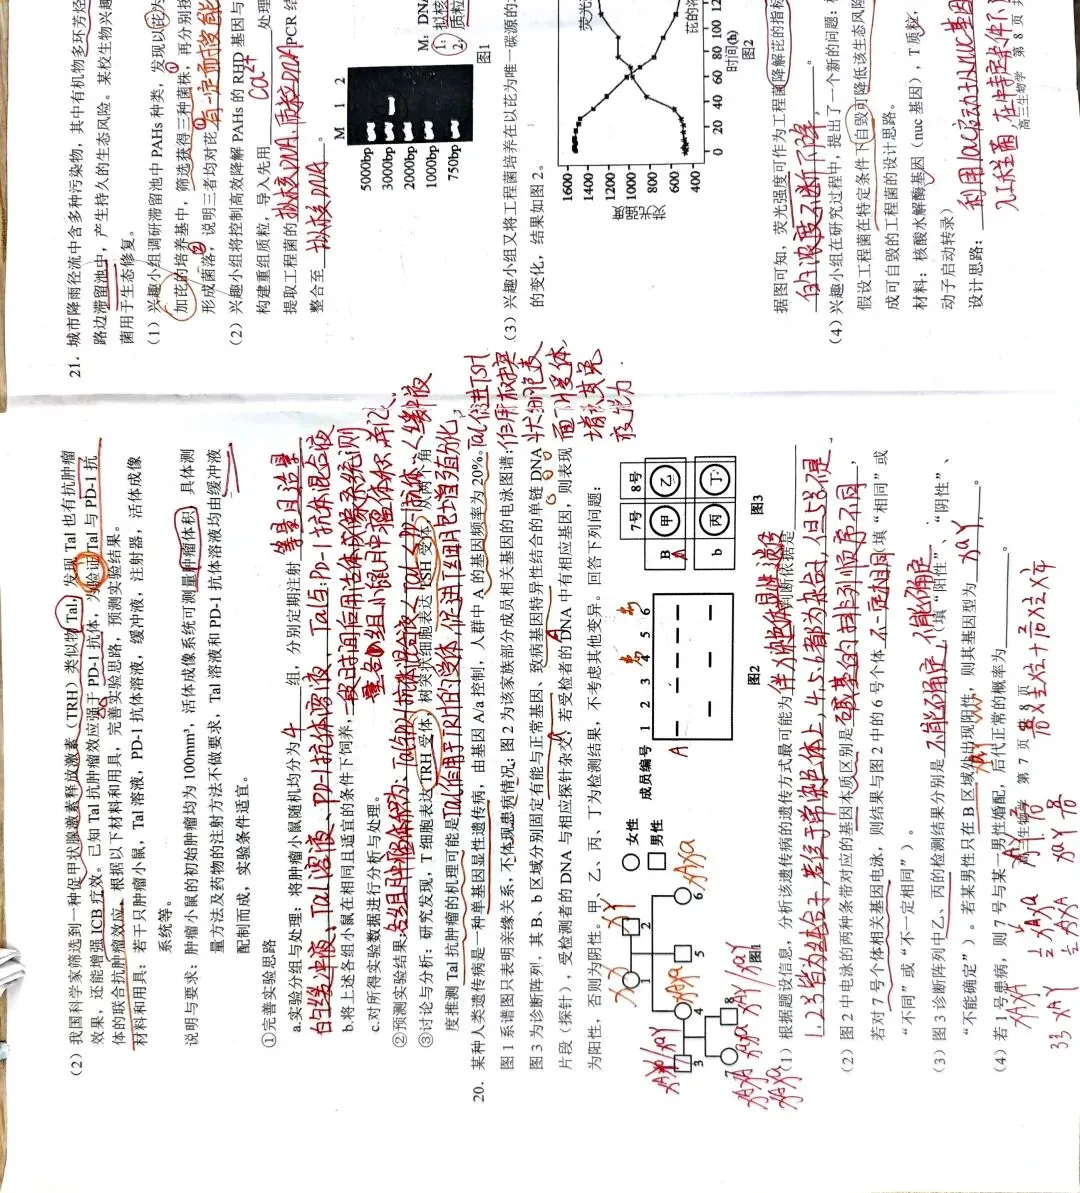 (2) 我国科学家筛选到一种促甲状腺激素释放激素（TRH）类似物 Tal，发现 Tal 也有抗肿瘤
效果，还能增强 ICB 疗效。已知 Tal 抗肿瘤效应强于 PD-1 抗体，为验证 Tal 与 PD-1 抗
体的联合抗肿瘤效应，根据以下材料和用具，完善实验思路，预测实验结果。
材料和用具：若干只肿瘤小鼠，Tal 溶液，PD-1 抗体溶液，缓冲液，注射器，活体成像
系统等。
说明与要求：肿瘤小鼠的初始肿瘤均为 100mm³，活体成像系统可测量肿瘤体积，具体测
量方法及药物的注射方法不做要求，Tal 溶液和 PD-1 抗体溶液均由缓冲液
配制而成，实验条件适宜。
①完善实验思路
a.实验分组与处理：将肿瘤小鼠随机均分为 4 组，分别定期注射 等量且适量
的缓冲液、Tal溶液、PD-1抗体溶液、Tal与PD-1抗体混合液
b.将上述各组小鼠在相同且适宜的条件下饲养，一段时间后用活体成像系统测
量各组小鼠肿瘤体积并记
c.对所得实验数据进行分析与处理。
②预测实验结果：各组肿瘤体积为：Tal与PD-1抗体混合液<Tal<PD-1抗体<缓冲液
③讨论与分析：研究发现，T 细胞表达 TRH 受体，树突状细胞表达 TSH 受体，从两个角
度推测 Tal 抗肿瘤的机理可能是 Tal作用于TRH的受体，促进T细胞增殖分化，
Tal促进TSH
作用于树突
状细胞表
面TSH受体
增强其免
疫能力
20. 某种人类遗传病是一种单基因显性遗传病，由基因 A/a 控制，人群中 A 的基因频率为 20%。
图 1 系谱图只表明亲缘关系，不体现患病情况；图 2 为该家族部分成员相关基因的电泳图谱；
图 3 为诊断阵列，其 B、b 区域分别固定有能与正常基因、致病基因特异性结合的单链 DNA
片段（探针），受检测者的 DNA 与相应探针杂交，若受检者的 DNA 中有相应基因，则表现
为阳性，否则为阴性。甲、乙、丙、丁为检测结果，不考虑其他变异。回答下列问题：
女性
男性
1 2
3 4 5 6
7 8
图1
成员编号 1 2 3 4 5 6
A
图2
7号 8号
B 甲 乙
b 丙 丁
图3
(1) 根据题设信息，分析该遗传病的遗传方式最可能为 伴X染色体显性遗传，判断依据是
1,2,3皆为纯合子，若位于常染色体上，4,5,6都为杂合子，但5号是
(2) 图 2 中电泳的两种条带对应的基因本质区别是 碱基的排列顺序不同，
若对 7 号个体相关基因电泳，则结果与图 2 中的 6 号个体 不一定相同（填“相同”或
“不同”或“不一定相同”）。
(3) 图 3 诊断阵列中乙、丙的检测结果分别是 不能确定、不能确定（填“阳性”、“阴性”、
“不能确定”）。若某男性只在 B 区域处出现阳性，则其基因型为 XaY。
(4) 若 1 号患病，则 7 号与某一男性婚配，后代正常的概率为
高三生物学 第 7 页 共 8 页
21. 城市降雨径流中含多种污染物，其中有机物多环芳烃
路边滞留池中，产生持久的生态风险。某校生物兴趣
菌用于生态修复。
(1) 兴趣小组调研滞留池中 PAHs 种类，发现以芘为
加芘的培养基中，筛选获得三种菌株，再分别接
形成菌落，说明三者均对芘
(2) 兴趣小组将控制高效降解 PAHs 的 RHD 基因与
构建重组质粒，导入先用 Ca2+ 处理
提取工程菌的 拟核DNA、质粒DNA PCR 结
整合至 拟核DNA。
M 1 2
5000bp
3000bp
2000bp
1000bp
750bp
M: DNA
1: 拟核
2: 质粒
图1
(3) 兴趣小组又将工程菌培养在以芘为唯一碳源的
的变化，结果如图 2。
1600
1400
1200
1000
800
600
400
0 20 40 60 80 100 12
时间(h)
图2
据图可知，荧光强度可作为工程菌降解芘的指标
的浓度不断下降，
(4) 兴趣小组在研究过程中，提出了一个新的问题：
假设工程菌在特定条件下自毁可降低该生态风险
成可自毁的工程菌的设计思路。
材料：核酸水解酶基因（nuc 基因），T 质粒，
动子启动转录）
设计思路：利用lac启动子从nuc基因
高三生物学 第 8 页 共